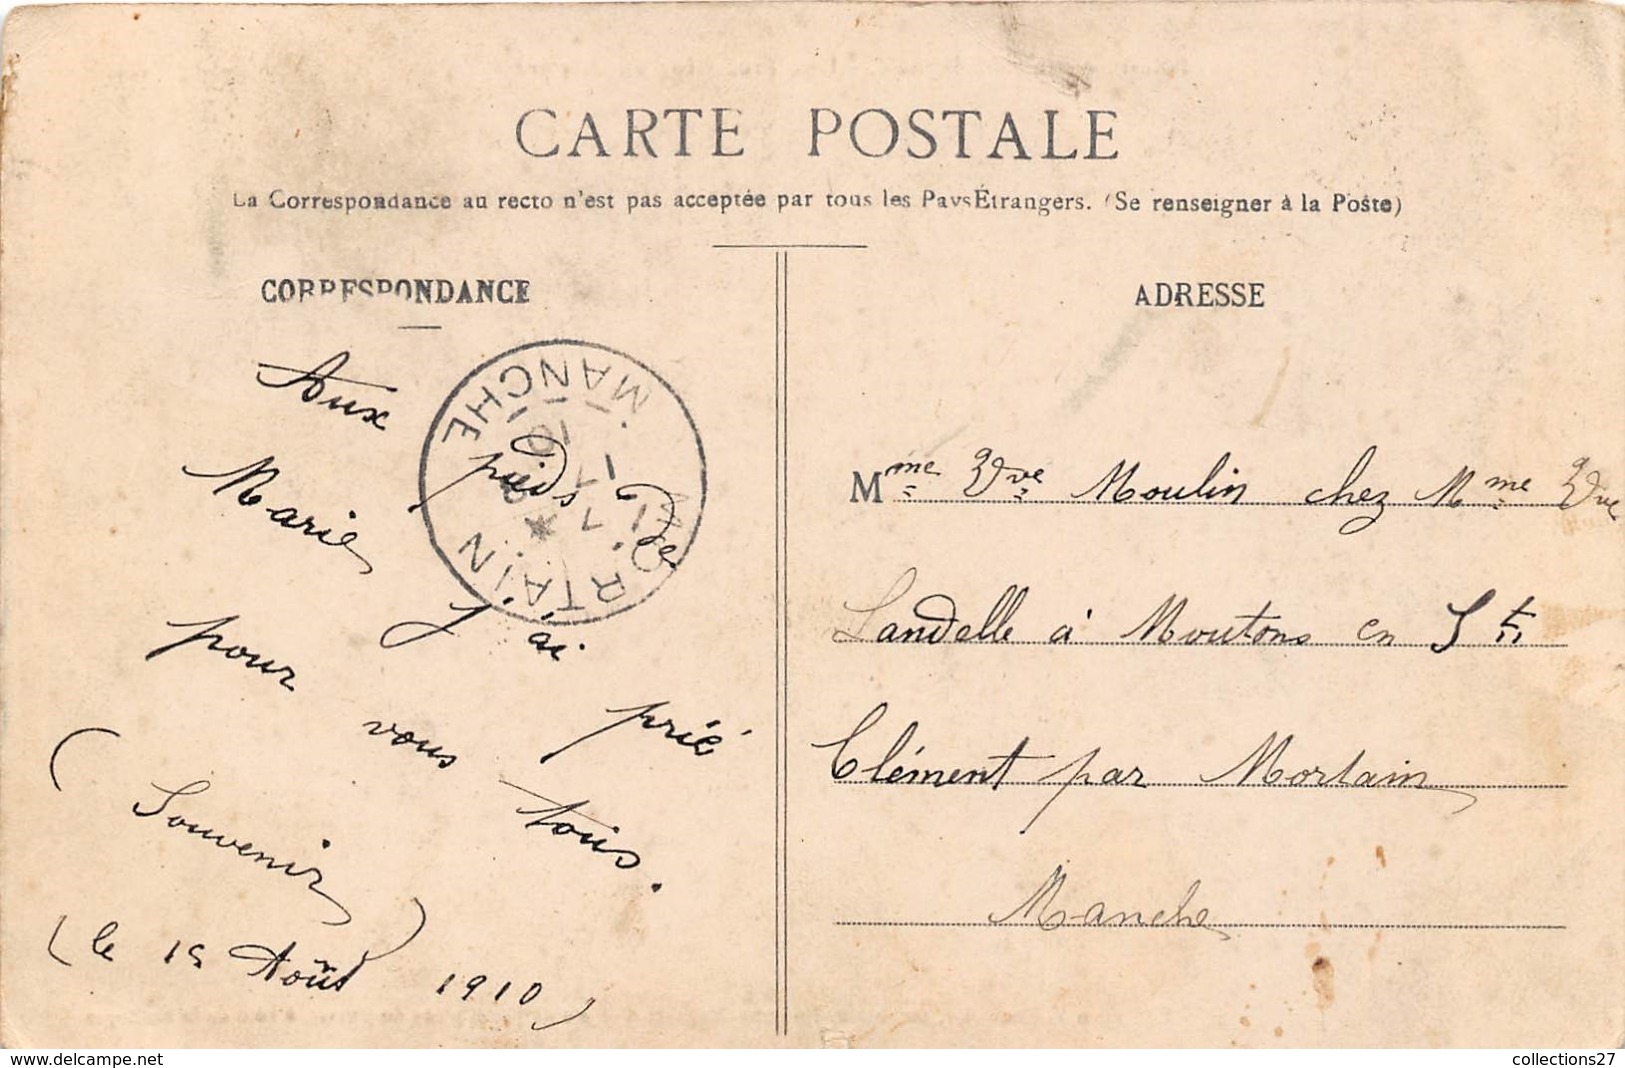 CARTE POSTALE
La Correspondance au recto n'est pas acceptée par tous les Pays Étrangers. (Se renseigner à la Poste)
CORRESPONDANCE
Aux pieds de
Marie J'ai prié
pour vous tous.
(Souvenir)
(le 15 Août 1910)
MORTAIN
MANCHE
ADRESSE
Mme Vve Moulin chez Mme Vve
Landelle à Moutons en St
Clément par Mortain
Manche
www.delcampe.net
collections27